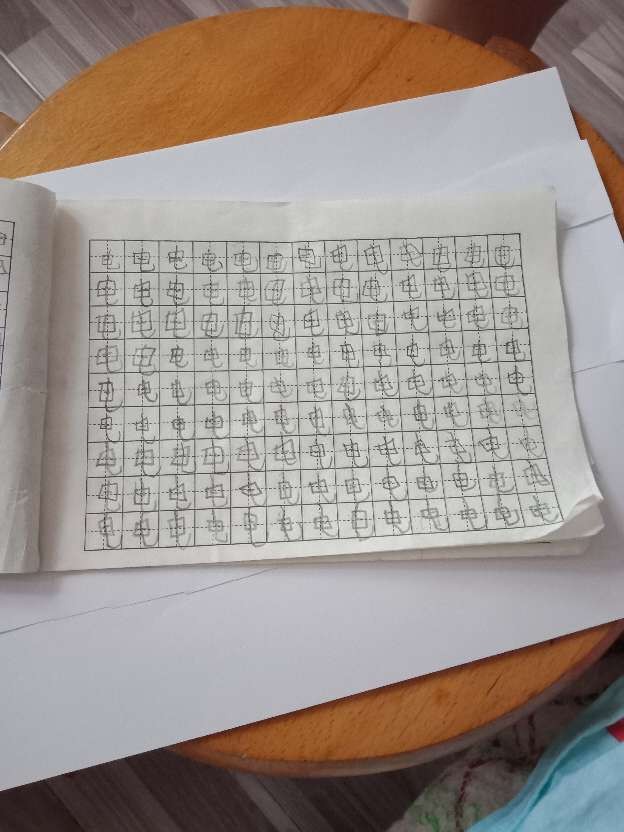 电电电电电电电电电电电电电
电电电电电电电电电电电电电
电电电电电电电电电电电电电
电电电电电电电电电电电电电
电电电电电电电电电电电电电
电电电电电电电电电电电电电
电电电电电电电电电电电电电
电电电电电电电电电电电电电
电电电电电电电电电电电电电